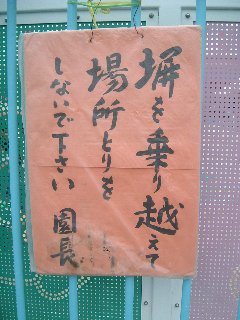 塀を乗り越えて
場所とりを
しないで下さい 園長